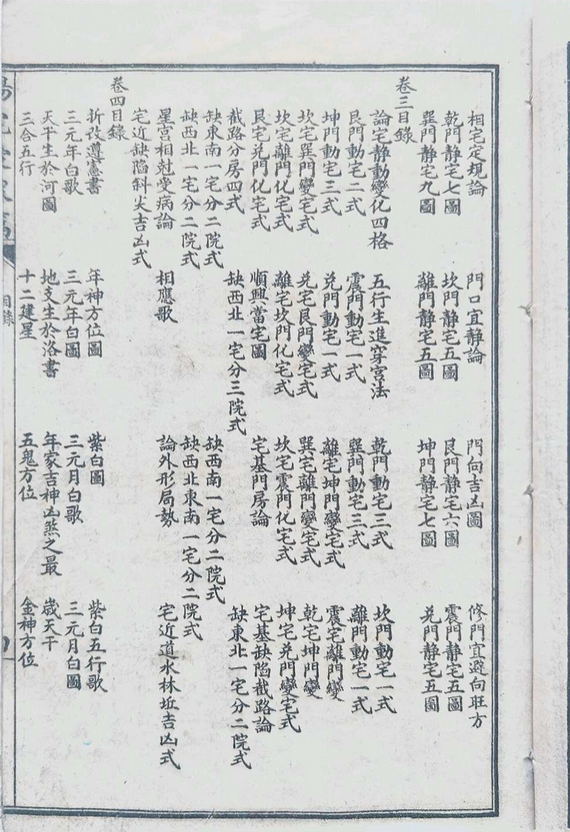 相宅定規論 門口宜静論 門向吉凶圖 修門宜避向旺方
乾門静宅七圖 坎門静宅五圖 艮門静宅六圖 震門静宅五圖
巽門静宅九圖 離門静宅五圖 坤門静宅七圖 兑門静宅五圖
卷三目錄
論宅静動變化四格 五行生進穿宫法 乾門動宅三式 坎門動宅一式
艮門動宅二式 震門動宅一式 巽門動宅三式 離門動宅一式
坤門動宅三式 兑門動宅一式 離宅坤門變宅式 震宅離門變
坎宅巽門變宅式 兑宅艮門變宅式 巽宅離門變宅式 乾宅坤門變
坎宅離門化宅式 離宅坎門化宅式 坎宅震門化宅式 坤宅兑門變宅式
艮宅兑門化宅式 順興當宅圖 宅基門房論 宅基缺陷截路論
截路分房四式 缺西北一宅分三院式 缺東北一宅分二院式
缺東南一宅分二院式 缺西南一宅分二院式
缺西北一宅分二院式 缺西北東南一宅分二院式
星宫相尅受病論 相應歌 論外形局勢 宅近道水林坵吉凶式
宅近缺陷斜尖吉凶式
卷四目錄
折改遵憲書 年神方位圖 紫白圖 紫白五行歌
三元年白歌 三元年白圖 三元月白歌 三元月白圖
天干生於河圖 地支生於洛書 年家吉神凶煞之最 歲天干
三合五行 十二建星 五鬼方位 金神方位
目錄